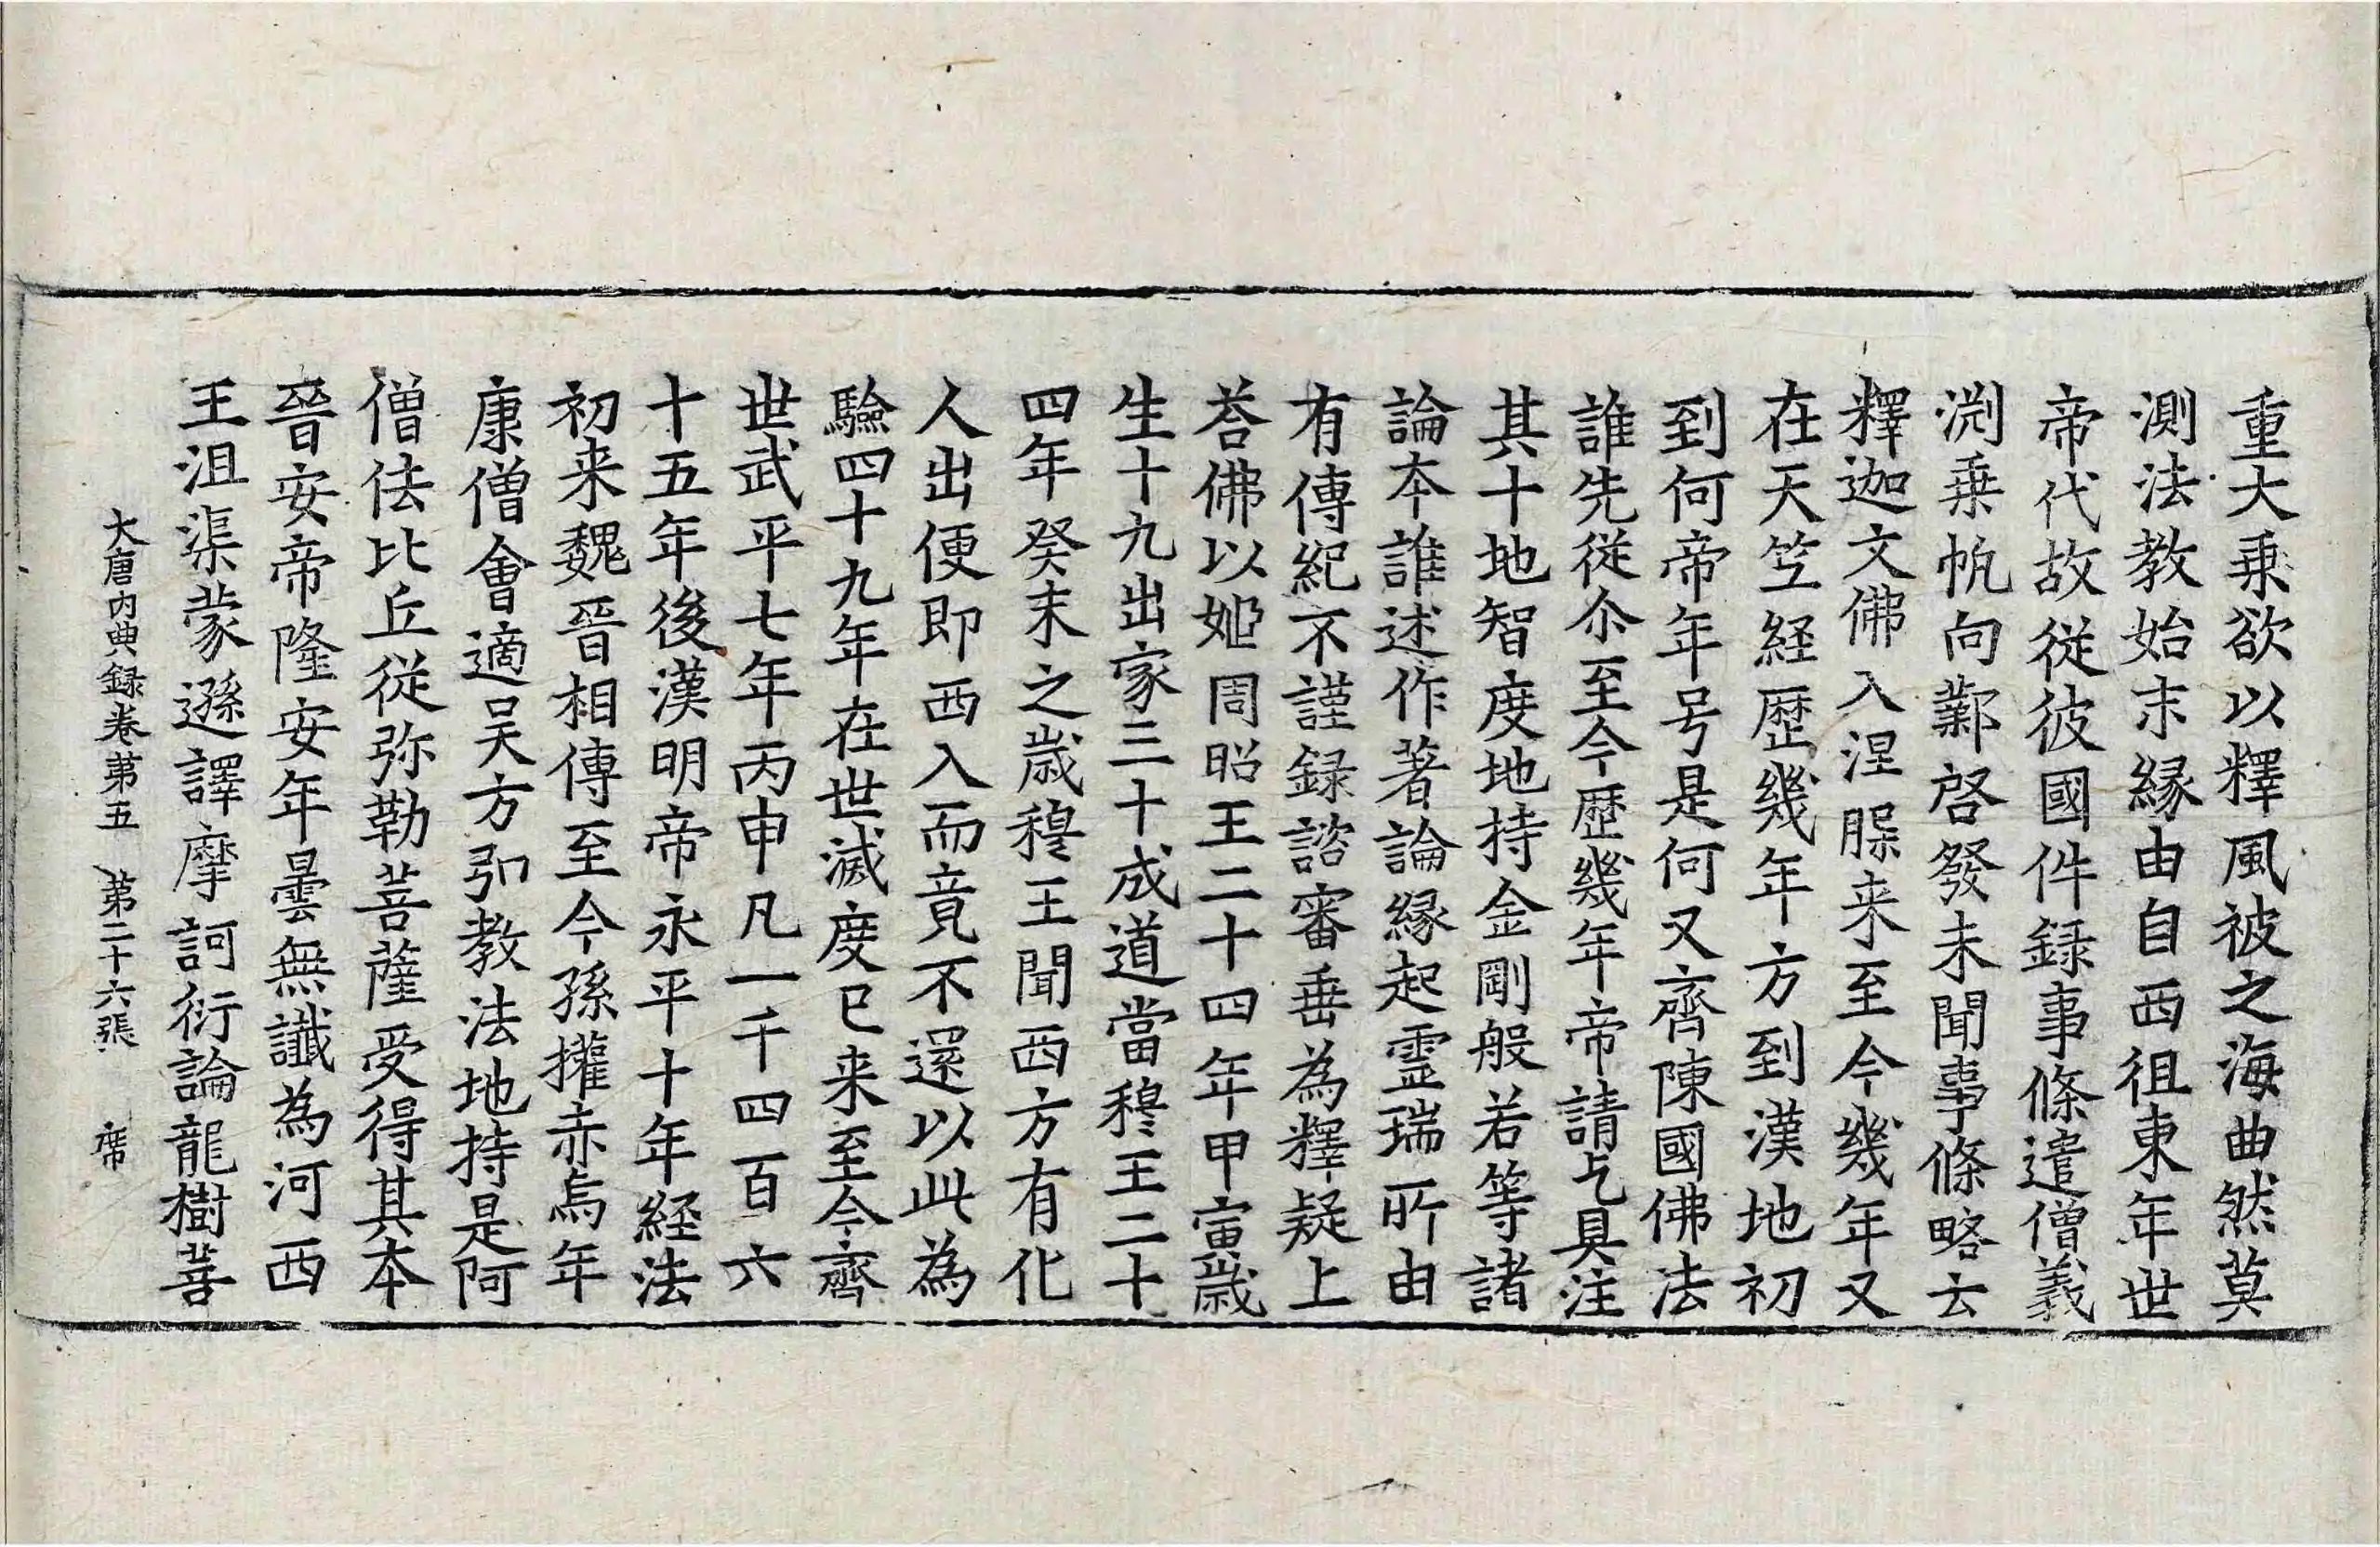 重大乗欲以釋風被之海曲然莫
測法教始末縁由自西徂東年世
帝代故従彼國件録事條遣僧義
渕乗帆向鄴啓發未聞事條略云
釋迦文佛入涅槃来至今幾年又
在天竺経歷幾年方到漢地初
到何帝年号是何又齊陳國佛法
誰先従尒至今歷幾年帝請乞具注
其十地智度地持金剛般若等諸
論本誰述作著論縁起霊瑞所由
有傳紀不謹録諮審垂為釋疑上
荅佛以姬周昭王二十四年甲寅歲
生十九出家三十成道當穆王二十
四年癸未之歲穆王聞西方有化
人出便即西入而竟不還以此為
驗四十九年在世滅度已来至今齊
世武平七年丙申凡一千四百六
十五年後漢明帝永平十年経法
初来魏晉相傳至今孫權赤烏年
康僧會適吴方弘教法地持是阿
僧佉比丘従弥勒菩薩受得其本
晉安帝隆安年曇無讖為河西
王沮渠蒙遜譯摩訶衍論龍樹菩
大唐内典録卷第五 第二十六張 席